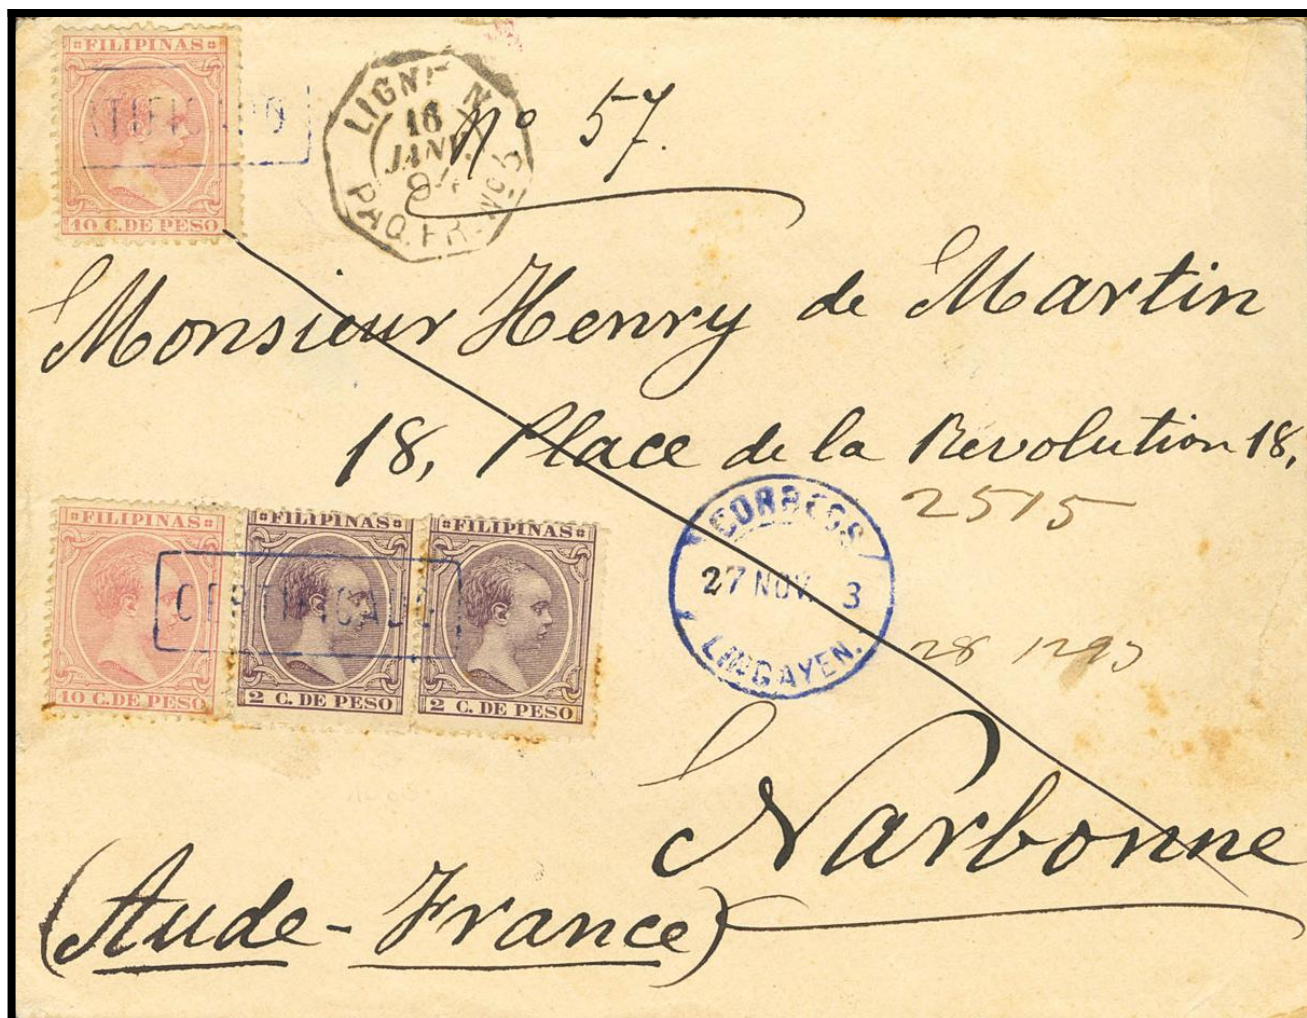 FILIPINAS
10 C. DE PESO
LIGNE N
16
JANV.
94
PAQ. FR. Nº 5
Nº 57.
Monsieur Henry de Martin
18, Place de la Révolution 18,
2515
FILIPINAS
10 C. DE PESO
FILIPINAS
2 C. DE PESO
FILIPINAS
2 C. DE PESO
CERTIFICADO
CORREOS
27 NOV. 3
LINGAYEN.
28
Narbonne
(Aude - France)